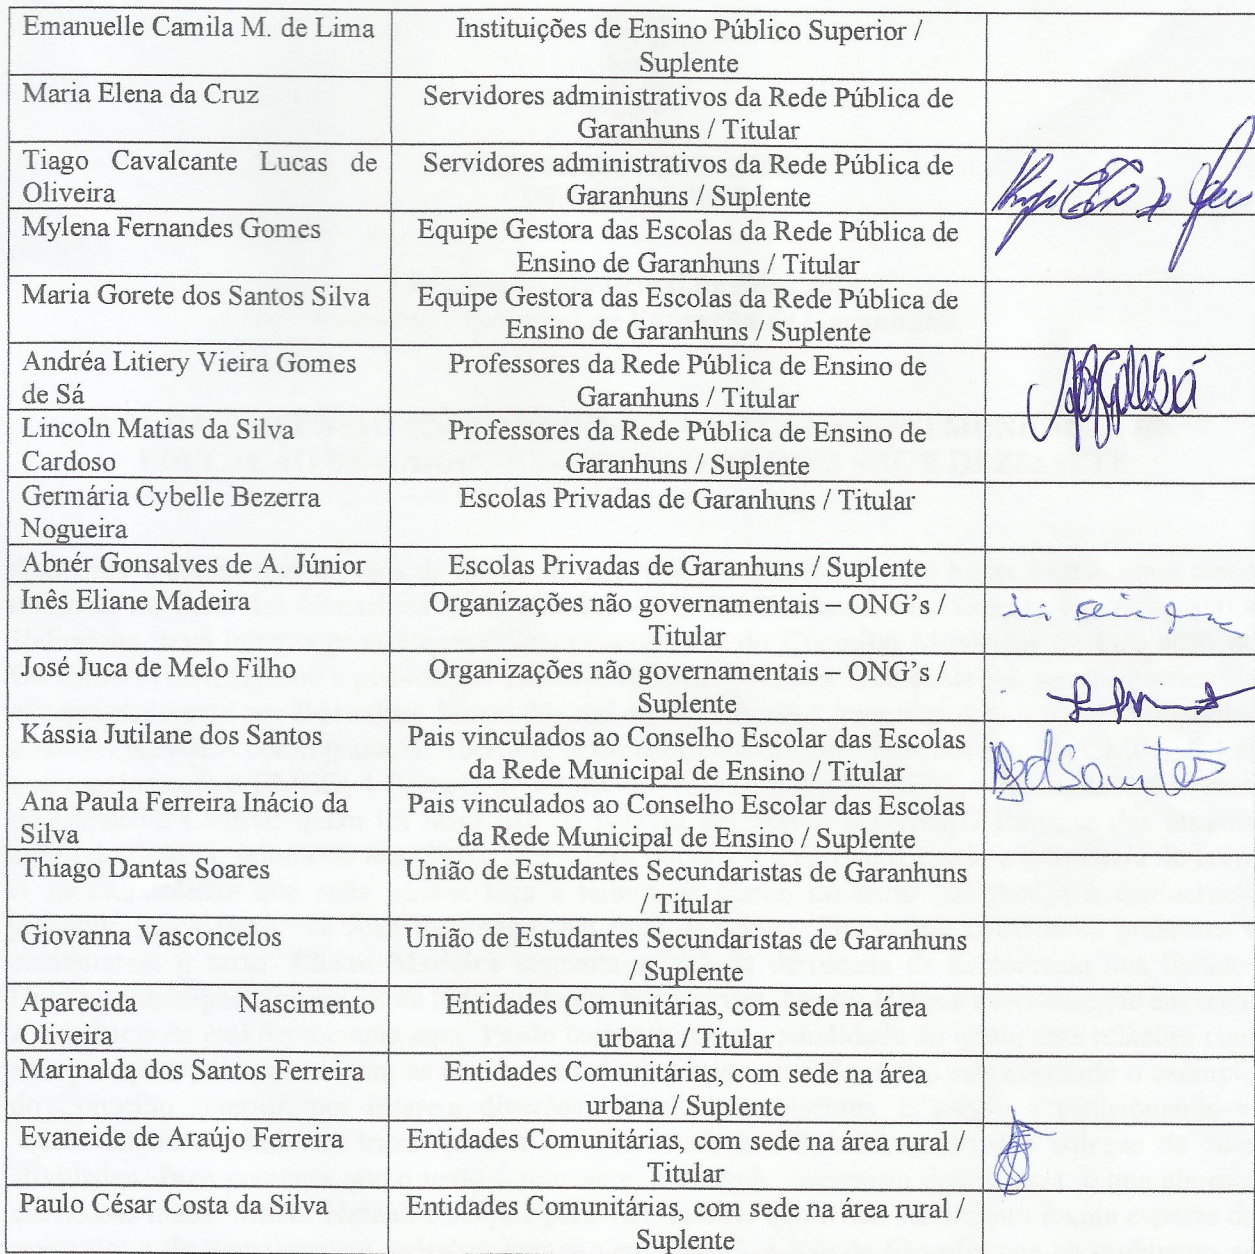 Emanuelle Camila M. de Lima
Instituições de Ensino Público Superior /
Suplente
Maria Elena da Cruz
Servidores administrativos da Rede Pública de
Garanhuns / Titular
Tiago Cavalcante Lucas de
Oliveira
Servidores administrativos da Rede Pública de
Garanhuns / Suplente
Mylena Fernandes Gomes
Equipe Gestora das Escolas da Rede Pública de
Ensino de Garanhuns / Titular
Maria Gorete dos Santos Silva
Equipe Gestora das Escolas da Rede Pública de
Ensino de Garanhuns / Suplente
Andréa Litiery Vieira Gomes
de Sá
Professores da Rede Pública de Ensino de
Garanhuns / Titular
Lincoln Matias da Silva
Cardoso
Professores da Rede Pública de Ensino de
Garanhuns / Suplente
Germária Cybelle Bezerra
Nogueira
Escolas Privadas de Garanhuns / Titular
Abnér Gonsalves de A. Júnior
Escolas Privadas de Garanhuns / Suplente
Inês Eliane Madeira
Organizações não governamentais – ONG's /
Titular
José Juca de Melo Filho
Organizações não governamentais – ONG's /
Suplente
Kássia Jutilane dos Santos
Pais vinculados ao Conselho Escolar das Escolas
da Rede Municipal de Ensino / Titular
Ana Paula Ferreira Inácio da
Silva
Pais vinculados ao Conselho Escolar das Escolas
da Rede Municipal de Ensino / Suplente
Thiago Dantas Soares
União de Estudantes Secundaristas de Garanhuns
/ Titular
Giovanna Vasconcelos
União de Estudantes Secundaristas de Garanhuns
/ Suplente
Aparecida Nascimento
Oliveira
Entidades Comunitárias, com sede na área
urbana / Titular
Marinalda dos Santos Ferreira
Entidades Comunitárias, com sede na área
urbana / Suplente
Evaneide de Araújo Ferreira
Entidades Comunitárias, com sede na área rural /
Titular
Paulo César Costa da Silva
Entidades Comunitárias, com sede na área rural /
Suplente